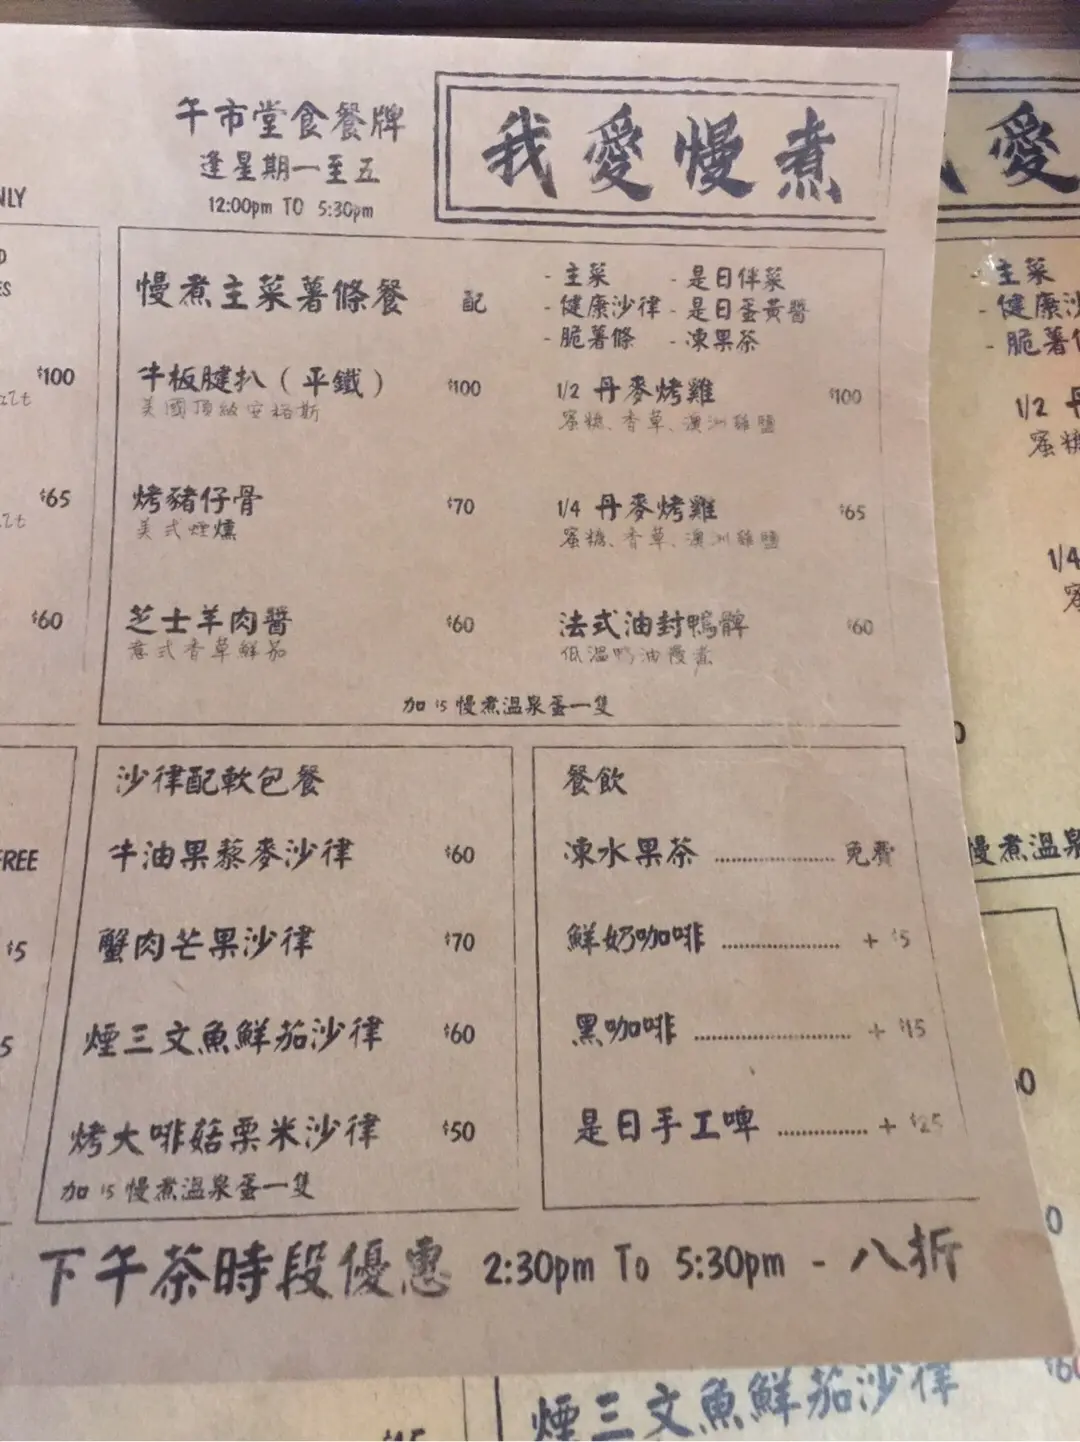 午市堂食餐牌
逢星期一至五
12:00pm TO 5:30pm
我愛慢煮
慢煮主菜薯條餐 配
- 主菜 - 是日伴菜
- 健康沙律 - 是日蛋黃醬
- 脆薯條 - 凍果茶
牛板腱扒(平鐵) $100
美國頂級安格斯
1/2 丹麥烤雞 $100
蜜糖、香草、澳洲雞鹽
烤豬仔骨 $70
美式煙燻
1/4 丹麥烤雞 $65
蜜糖、香草、澳洲雞鹽
芝士羊肉醬 $60
意式香草鮮茄
法式油封鴨髀 $60
低溫鴨油慢煮
加 $5 慢煮溫泉蛋一隻
沙律配軟包餐
牛油果藜麥沙律 $60
蟹肉芒果沙律 $70
煙三文魚鮮茄沙律 $60
烤大啡菇粟米沙律 $50
加 $5 慢煮溫泉蛋一隻
餐飲
凍水果茶 .................. 免費
鮮奶咖啡 .................. + $5
黑咖啡 ........................ + $15
是日手工啤 .............. + $25
下午茶時段優惠 2:30pm To 5:30pm - 八折
NLY
$100
$65
$60
FREE
$5
5
愛
- 主菜
- 健康沙
- 脆薯
1/2
蜜糖
1/4
慢煮溫泉
煙三文魚鮮茄沙律